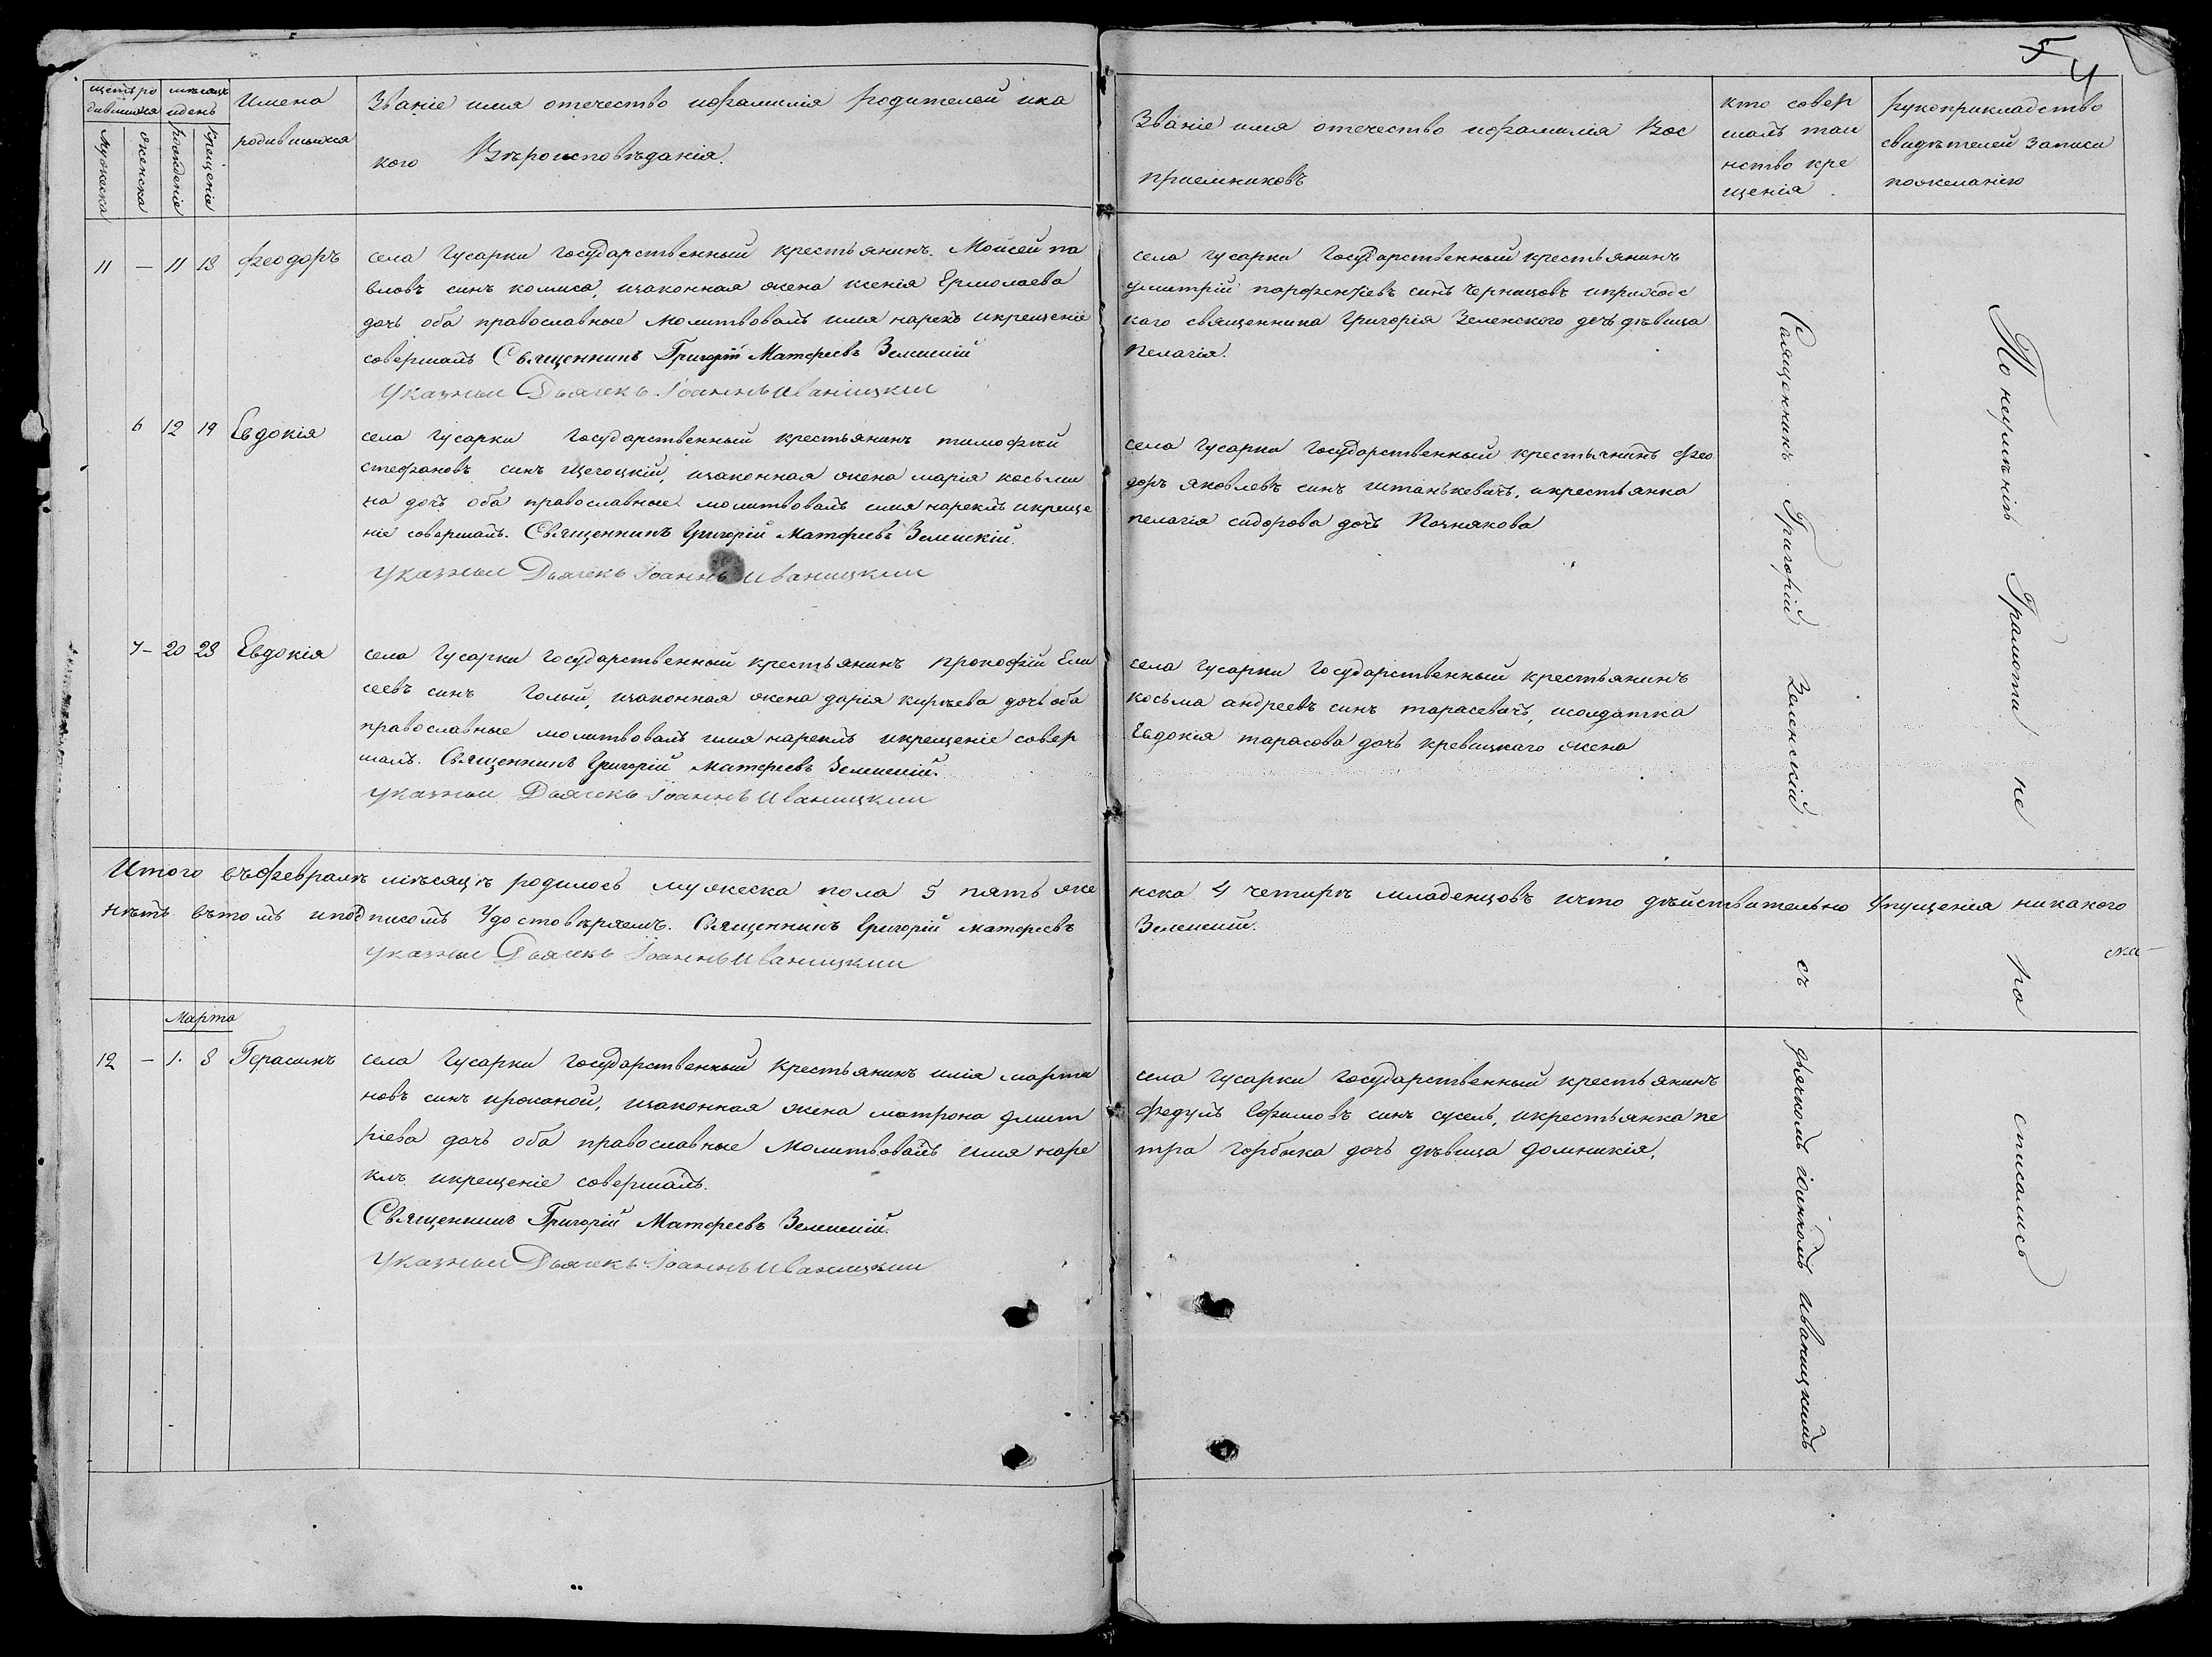 5 4
щетъ ро
дившихся
мѣсяцъ
идень
Имена
родившихся
Званіе имя отечество ифамилія родителей ика
кого Вѣроисповѣданія.
мужеска
женска
рожденіе
крещенія
Званіе имя отечество ифамилія Вос
приемниковъ
кто совер
шалъ таи
нство кре
щенія
рукоприкладство
свидѣтелей записи
пожеланію
11 — 11 18 Феодоръ
села Гусарки государственный крестьянинъ. Мойсей па
вловъ синъ комиса, изаконная жена ксенія Ермолаева
дочь оба православные молитвовалъ имя нарекъ икрещеніе
совершалъ Священникъ Григорій Матфеевъ Зеленскій
Указный Дьячекъ Іоаннъ Иваницкии
села гусарки Государственный крестьянинъ
дмитрій парфентіевъ синъ Чернишовъ иприходс
каго священника Григорія Зеленского дочь дѣвица
Пелагія.
6 12 19 Евдокія
села Гусарки Государственный крестьянинъ тимофѣй
стефановъ синъ щегоцкій, изаконная жена марія косьми
на дочъ оба православные молитвовалъ имя нареклъ икреще
ніе совершалъ. Священникъ Григорій Матфеевъ Зеленскій.
Указный Дьячекъ Іоаннъ Иваницкии
села Гусарки Государственный крестьянинъ Фео
доръ яковлевъ синъ штанькевичъ, икрестьянка
пелагія сидорова дочъ Познякова
7 — 20 28 Евдокія
села Гусарки государственный крестьянинъ прокофій Ели
сеевъ синъ Голый, изаконная жена дарія кирѣева дочь оба
православные молитвовалъ имя нареклъ икрещеніе совер
шалъ. Священникъ Григорій матфеевъ Зеленскій.
Указный Дьячекъ Іоаннъ Иваницкии
села гусарки Государственный крестьянинъ
косьма андреевъ синъ тарасевичъ, исолдатка
Евдокія тарасова дочъ кревицкаго жена
Итого въфевралѣ мѣсяцѣ родилось мужеска пола 5 пять же
нска 4 четирѣ младенцовъ ичто дѣйствительно упущенія никакого
нѣтъ вътомъ иподписомъ Удостовѣряемъ. Священникъ Григорій матфеевъ
Зеленскій.
Указный Дьячекъ Іоаннъ Иваницкии
Марта
12 — 1. 8 Герасимъ
села Гусарки Государственный Крестьянинъ илія марти
новъ синъ , изаконная жена матрона дмит
ріева дочь оба православные молитвовалъ имя наре
клъ икрещеніе совершалъ.
Священникъ Григорій Матфеевъ Зеленскій.
Указный Дьячекъ Іоаннъ Иваницкии
села Гусарки государственный крестьянинъ
Федулъ Ефимовъ синъ сусель, икрестьянка пе
тра Горбика дочь дѣвица домникія.
Священникъ Григорій Зеленскій съ дьячкомъ іоанномъ иваницкимъ
По неумѣнію Грамоти не ро списались